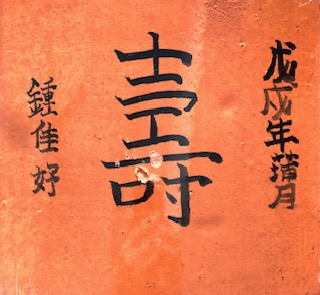 戊戌年蒲月
壽
鍾佳妤